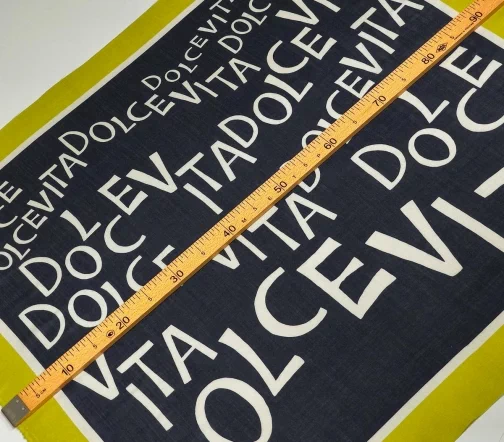 DOLCEVITA
DOLCEVITA
DOLCEVITA
DOLCEVITA
DOLCEVITA
DOLCEV
ITADOLCEVI
DOLCEVITA
DOLCE
VITA
DOLCE
VITA
DOLCEVIT
10 20 30 40 50 60 70 80 90